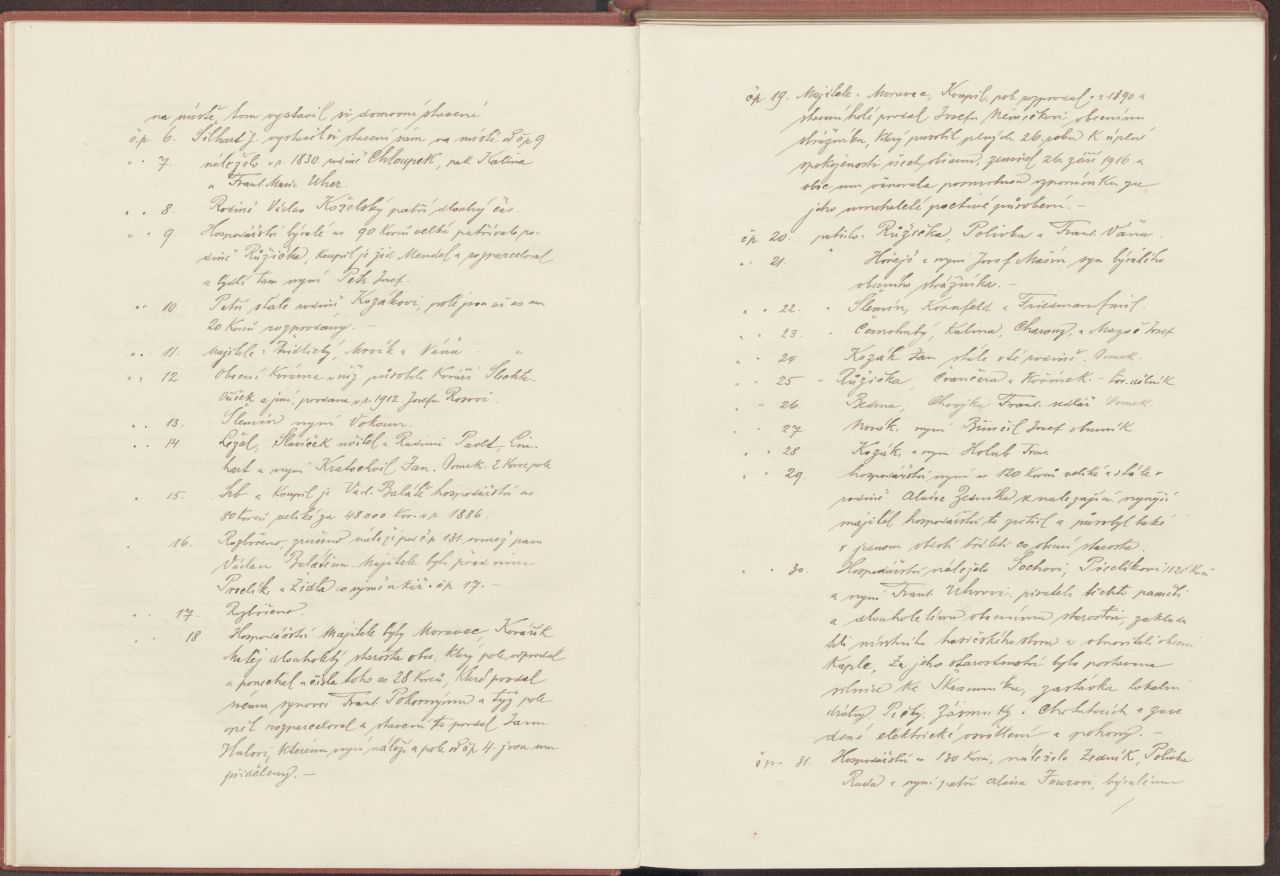 na místě tom vystavil si domovní stavení
č.p. 6. Šilhart J. vystavil si stavení sám na místě od čp 9
" " 7 náleželo v r. 1830 rodině Chloupek, pak Kalina
a Frant. Marie Uher.
" " 8. Rodině Václav Koželský patří dlouhý čas.
" " 9 Hospodářství bývalé as 90 korců velké patřívalo ro-
dině Růžička, koupil je žid Mendel a rozparceloval
a bydlí tam nyní Petr Josef.
" " 10. Patří stále rodině Kozákovi, pole jsou až as na
20 korců rozprodány. –
" " 11. Majitelé: Mrvík a Váňa. "
" " 12. Obecní kovárna v níž působili kováři Šlechta,
a jiní, prodána v r. 1912. Josefu Rosovi.
" " 13. Slemín nyní Vokoun.
" " 14. Ležal, Slavíček učitel a Radimi Pavel, Lin-
hart a nyní Kratochvíl Jan. Domek. 2 korce pole
" 15. Srb a koupil je Václ. Balátě hospodářství as
80 korců veliké za 48.000 kor. v r. 1886.
" 16. Rozbořeno, zrušeno náleží pod čp 131 ornej pan
Václavu Balátěmu. Majitelé byli před ním
Proclík, a Zídla co výměnkář v čp 17. –
" " 17. Rozbořeno.
" " 18. Hospodářství Majitelé byly Moravec, Kovářík
Matěj dlouholetý starosta obce, který pole odprodal
a ponechal u čísla toho as 28 korců, které prodal
němu synovci Frant. Pokornýmu a týž pole
opět rozparceloval a stavení to prodal Janu
Hulovi, kterému nyní náleží a pole od čp 4. jsou mu
přiděleny. –
čp 19. Majitelé: Moravec, Koupil, pole rozprodal v r 1890 a
stavení holé prodal Josefu Němečkovi obecnímu
strážníku, který sloužil plných 26 roků k úplné
spokojenosti všech občanů, zemřel 26. září 1916 a
obec mu věnovala posmrtnou vzpomínku za
jeho neúnavné poctivé působení. –
čp 20. patřilo: Růžička, Polívka a Frant. Váňa.
" " 21. " Hořejš a nyní Josef Mašín syn bývalého
obecního strážníka. –
" " 22. " Slemín, Kornfeld a Friedman
" " 23. " Černohubý, Kalina, Charouz, a Mazač Josef
" " 24 Kozák Jan stále v té rodině. Domek.
" " 25 " Růžička, Čvančera a Kořínek. – tov. dělník
" " 26. Bedrna, Chvojka Frant. sedlář Domek.
" " 27 Novák. nyní Josef obuvník
" " 28 Kozák, a nyní Holub Fran.
" " 29 hospodářství nyní as 120 korců veliké a stále v
rodině Aloise Zedníka se nalezající, nynější
majitel hospodářství to zvětšil a působil také
v jednom období tříletí co obecní starosta.
" " 30. Hospodářství náleželo Sochovi, Procelíkovi 120 korců
a nyní Frant. Uhrovi. pisateli těchto pamětí
a dlouholetému obecnímu starostovi, zaklada-
teli místního hasičského sboru a obnoviteli obecní
kaple, za jeho starostenství byla postavena
silnice ke Skramníku, zastávka lokální
dráhy Pečky Zásmuky v Chotuticích a zave-
dené elektrické osvětlení a pohony. –
čp. 31. Hospodářství as 130 korců, náleželo Zedník, Polívka
Rada a nyní patří Aloisu Fouzovi, bývalému